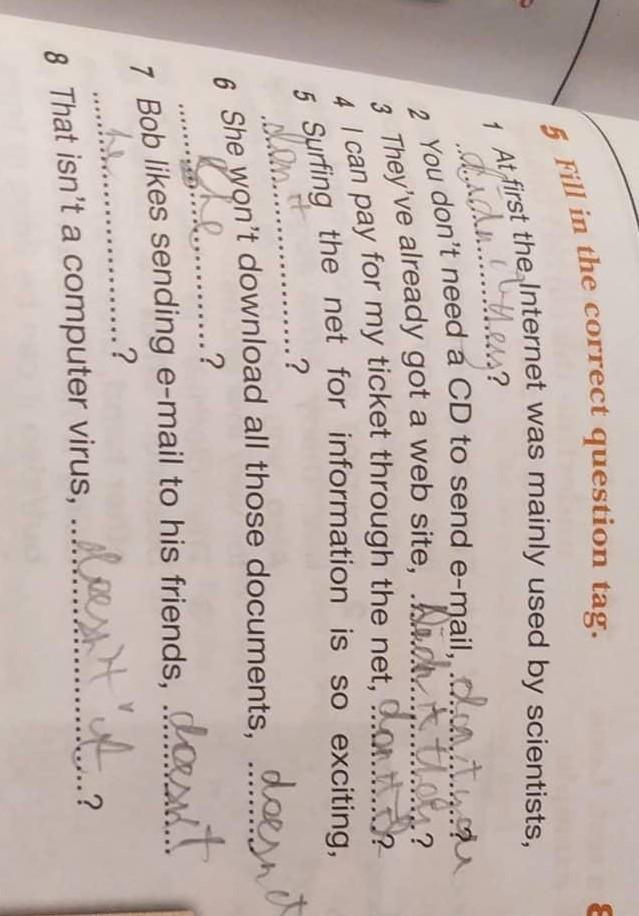 8
5 Fill in the correct question tag.
1 At first the Internet was mainly used by scientists,
..................?
2 You don't need a CD to send e-mail, don't you ?
3 They've already got a web site, ..................?
4 I can pay for my ticket through the net, don't I ?
5 Surfing the net for information is so exciting,
don't ..................?
6 She won't download all those documents, doesn't
she ..................?
7 Bob likes sending e-mail to his friends, doesn't
he ..................?
8 That isn't a computer virus, doesn't it ..?